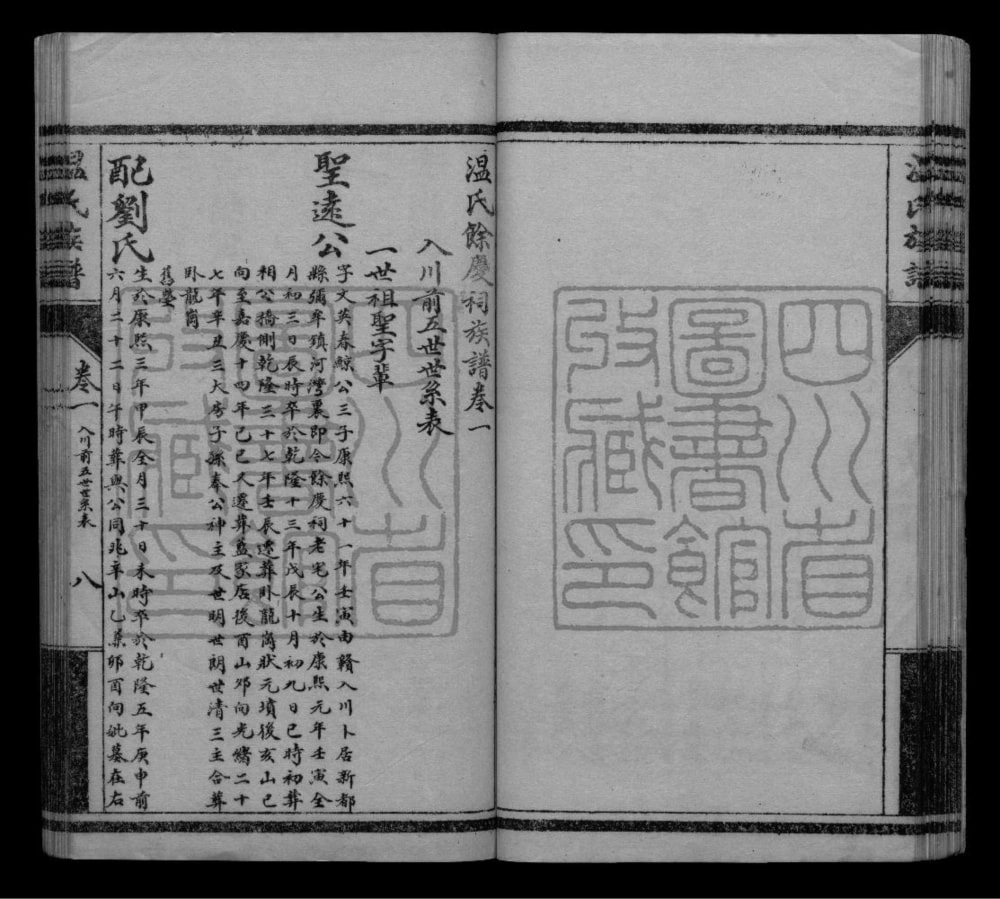 四川省
圖書館
收藏印
温氏餘慶祠族譜卷一
入川前五世世系表
一世祖聖字輩
聖遠公
字文英春鯨公三子康熙六十一年壬寅由贛入川卜居新都
縣彌牟鎮河灣裏即今餘慶祠老宅公生於康熙元年壬寅全
月初三日辰時卒於乾隆十三年戊辰十月初九日巳時初葬
相公橋側乾隆三十七年壬辰遷葬卧龍崗狀元墳後亥山巳
向至嘉慶十四年己巳又遷葬藍家店後酉山卯向光緒二十
七年辛丑三大房子孫奉公神主及世明世朗世清三主合葬
卧龍崗
舊塋
配劉氏
生於康熙三年甲辰全月三十日未時卒於乾隆五年庚申前
六月二十二日午時葬與公同兆辛山乙兼卯酉向妣墓在右
温氏族譜
卷一
入川前五世世系表
八